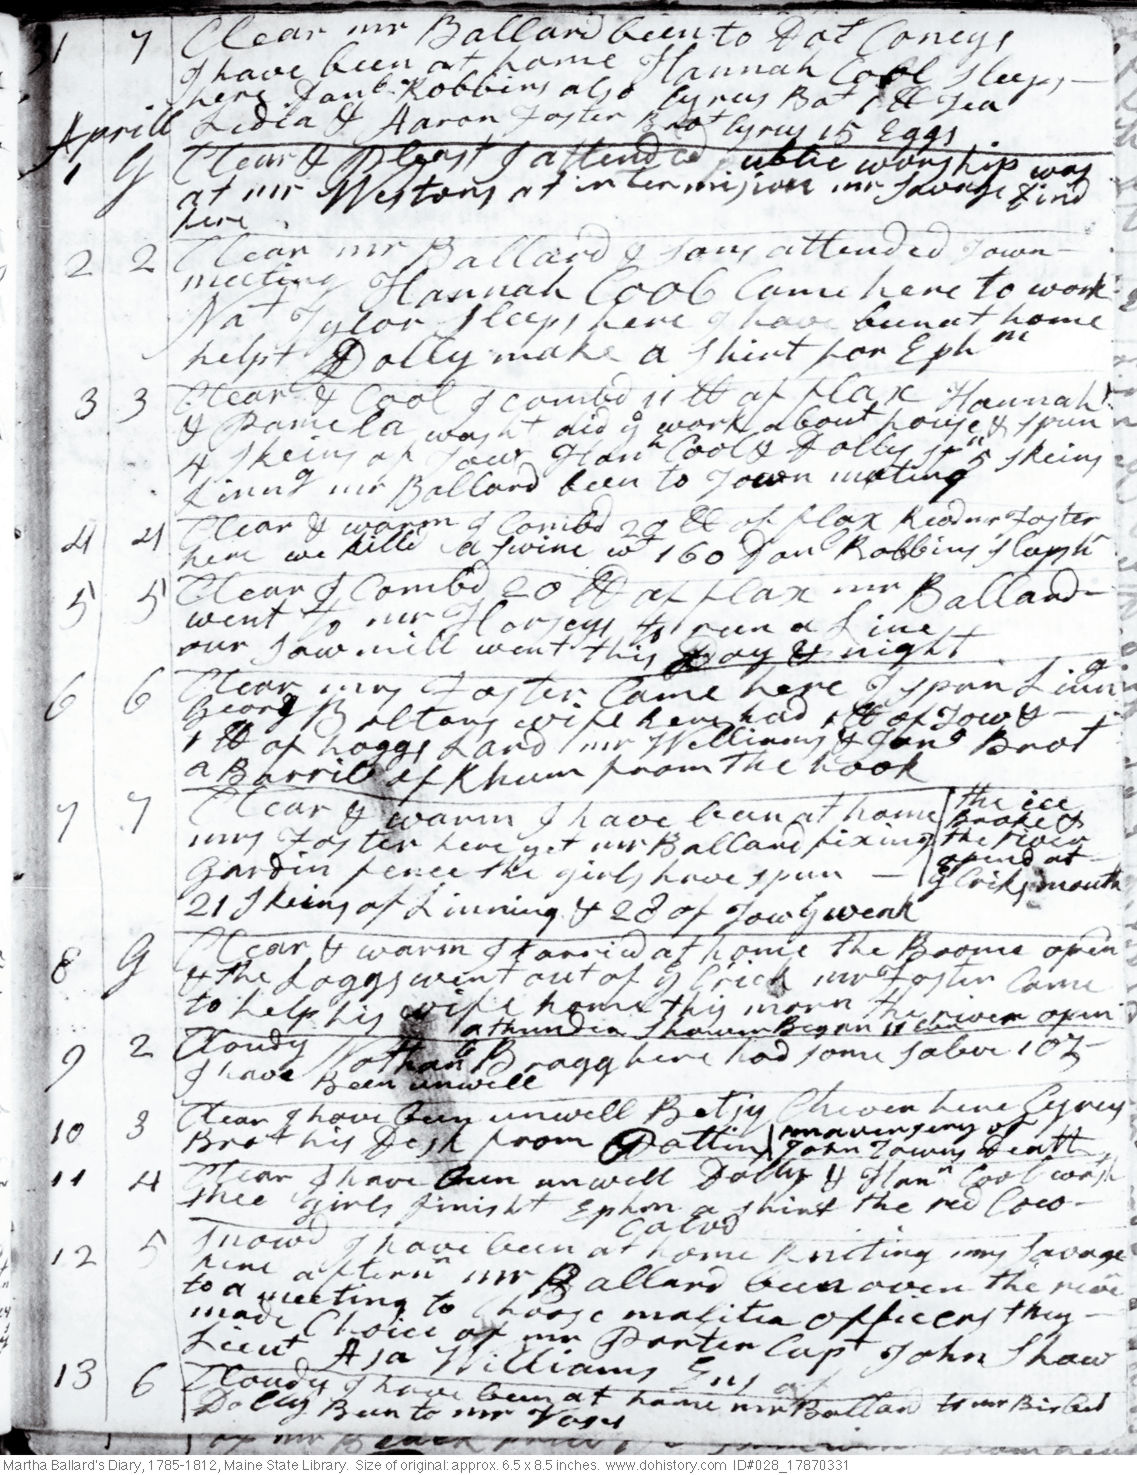 31 7 Clear mr Ballard been to Doct Coneys
I have been at home Hannah Cool sleeps
here Danl Robbins also Cyrus Bot 1 lb Tea
Lidia & Aaron Foster Brot Cyrus 15 Eggs
Aprill
1 G Clear & pleast I attended publie worship was
at mr Westons at intermision mr Savage dind
here
2 2 Clear mr Ballard & sons attended Town
meeting Hannah Cool Came here to work
Nat Tylor sleeps here I have been at home
helpt Dolly make a shirt for Ephm
3 3 Clear & Cool I combd 11 lb of flax Hannah
& Pamela washt did ye work about house & spun
4 skeins of Tow Hanh Cool & Dolly spn 5 skeins
Linng mr Ballard been to Town meting
4 4 Clear & warm I Combd 29 lb of flax mr Foster
here we killd a swine wt 160 Dan Robbins sleeps hr
5 5 Clear I Combd 20 lb of flax mr Ballard
went to mr Horseys to run a Line
our saw mill went this Day & night
6 6 Clear mrs Foster Came here I spun Linng
Georg Boltons wife here had 1 lb of Tow &
1 lb of hoggs Lard mr Williams & Brot
a Barril of Rhum from the hook
7 7 Clear & warm I have been at home
mrs Foster here yet mr Ballard fixing
Gardin fence the girls have spun
21 skeins of Linning & 28 of Tow ys week
the ice
Broke &
the river
opend at
ye Criks mouth
8 G Clear & warm I tarried at home the Booms open
& the Loggs went out of ye Crick mr Foster Came
to help his wife home this morn the river open
a thunder shower Began 11 evn
9 2 Cloudy Nathanl Bragg here had some salve 1 oz
I have Been unwell
10 3 Clear I have Been unwell Betsy Chever here Cyrus
Brot his Desk from Pollins
anaversery of
John Towns Death
11 4 Clear I have Been unwell Dolly & Hanh Cool wash
thee girls finisht Ephm a shirt the red Cow
Calvd
12 5 Snowd I have been at home kniting mrs Savage
here afternn mr Ballard been over the river
to a meeting to Choose malitia officers they
made Choice of mr Porter Capt John Shaw
Lieut Asa Williams Ens
13 6 Cloudy I have been at home mr Ballard to mr
Dolly Been to mr Voses
Martha Ballard's Diary, 1785-1812, Maine State Library. Size of original: approx. 6.5 x 8.5 inches. www.dohistory.com ID#028_17870331